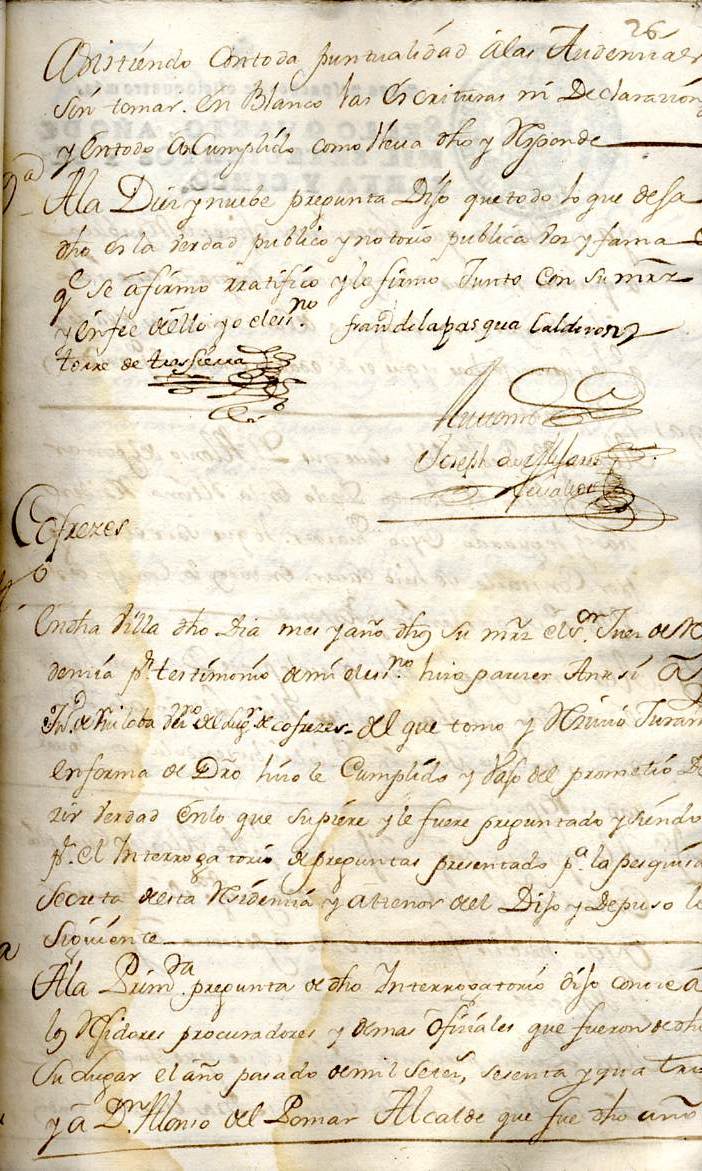 26
Asistiendo Contoda puntualidad alas Audencias
sin tomar en Blanco las Escrituras ni Declarazion
y entodo a Cumplido como lleva dho y Responde
9ª
Ala Diez y nuebe pregunta Dijo que todo lo que deja
dho es la berdad publico y notorio publica boz y fama
qe se afirmo rratifico y lo firmo Junto con su mrz
y enfee dello yo eless.no franco delapasqua Calderon
torre de trassierra
Antemi
Joseph de
Cofrezes
6
Endha Villa dho Dia mes y año dho su mrz el Sor Juez de Re
demzia pr testimonio demi eless.no hizo parezer Antesi a
Jno de Villoba vezo del lugr de cofrezes del que tomo y Rezivio Juram
enforma de Dro hizo le Cumplido y Vajo del prometio De
zir berdad enlo que supiere y le fuere preguntado y siendo
pr el Interrogatorio de preguntas presentado pa la pesquisa
secreta desta Residenzia y atenor del Dijo y Depuso lo
siguiente
Ala Primda pregunta de dho Interrogatorio dijo conoze a
los Rejidores procuradores y demas ofiziales que fueron de dho
su Lugar el año pasado de mil setezs sesenta y qua tro
y a Dn Alonso del Pomar Alcalde que fue dho año